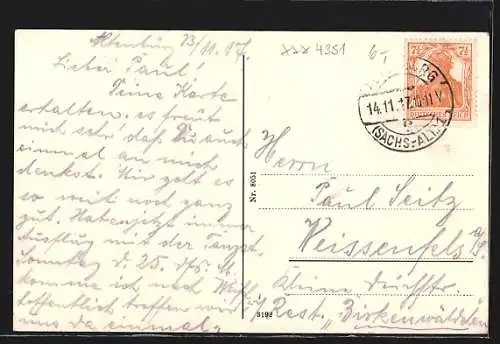 Altenburg 13/11. 17.
Lieber Paul!
Deine Karte
erhalten, es freut
mich sehr daß Du auch
einmal an mich
denkst. Mir geht es
so weit noch ganz
gut. Haben jetzt immer
Ausflug mit der Tanzst.
Sonntag d. 25. dfs. Mt.
komme ich nach
hoffentlich treffen wir
uns da einmal
xxx 4351
6,-
7½ 7½
DEUTSCHES REICH
14.11.17.
(SACHS.-ALT.)
Nr. 8051
5192
Herrn
Paul Seitz
Weissenfels a/S.
Kleine Deichstr.
Rest. "Birkenwäldchen